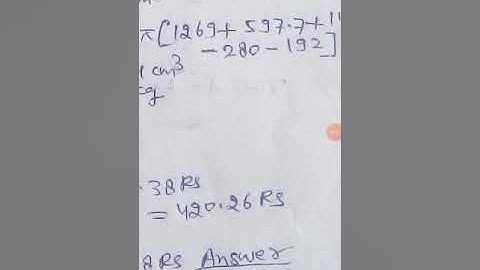 π[1269+ 597.7+11
- 280 - 192]
cm³
g
.38 RS
= 420.26 RS
8 RS Answer